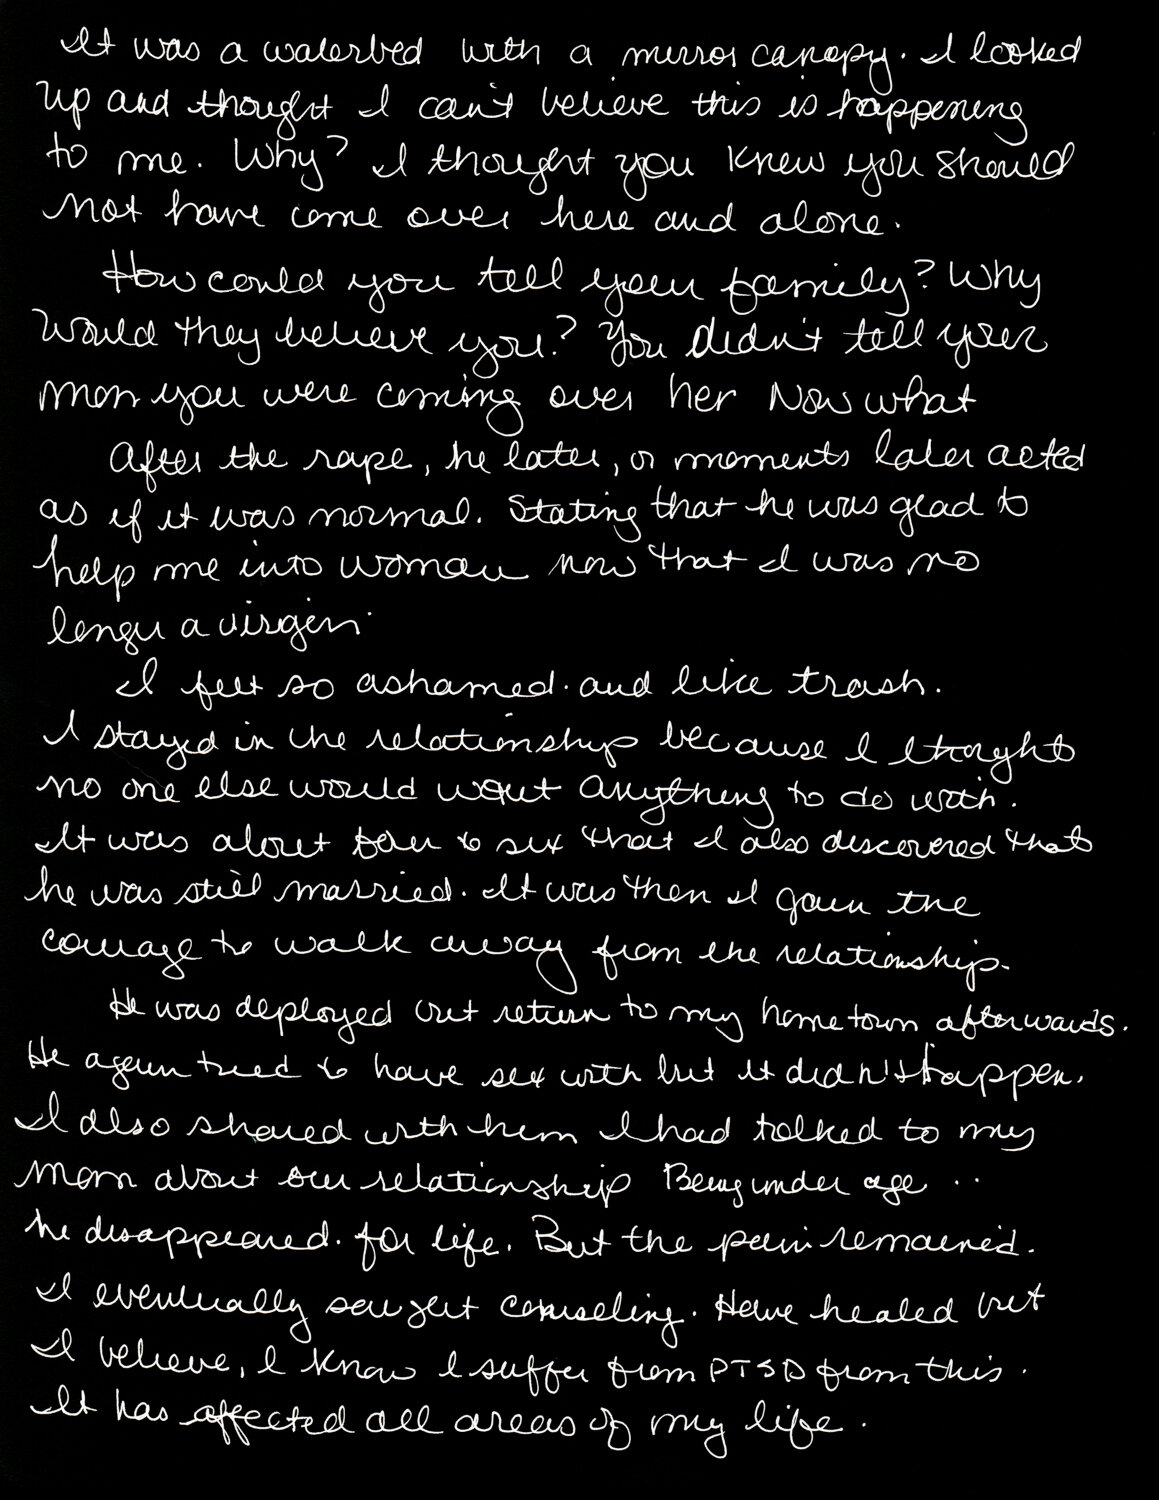 It was a waterbed with a mirror canopy. I looked
up and thought I can't believe this is happening
to me. Why? I thought you knew you should
not have come over here and alone.
How could you tell your family? Why
would they believe you? You didn't tell your
mom you were coming over her Now what
After the rape, he later, or moments later acted
as if it was normal. Stating that he was glad to
help me into woman now that I was no
longer a virgin.
I felt so ashamed. and like trash.
I stayed in the relationship because I thought
no one else would want anything to do with.
It was about four to six that I also discovered that
he was still married. It was then I gain the
courage to walk away from the relationship.
He was deployed but return to my hometown afterwards.
He again tried to have sex with but it didn't happen.
I also shared with him I had talked to my
mom about our relationship Being under age ..
he disappeared. for life. But the pain remained.
I eventually sought counseling. Have healed but
I believe, I know I suffer from PTSD from this.
It has affected all areas of my life.